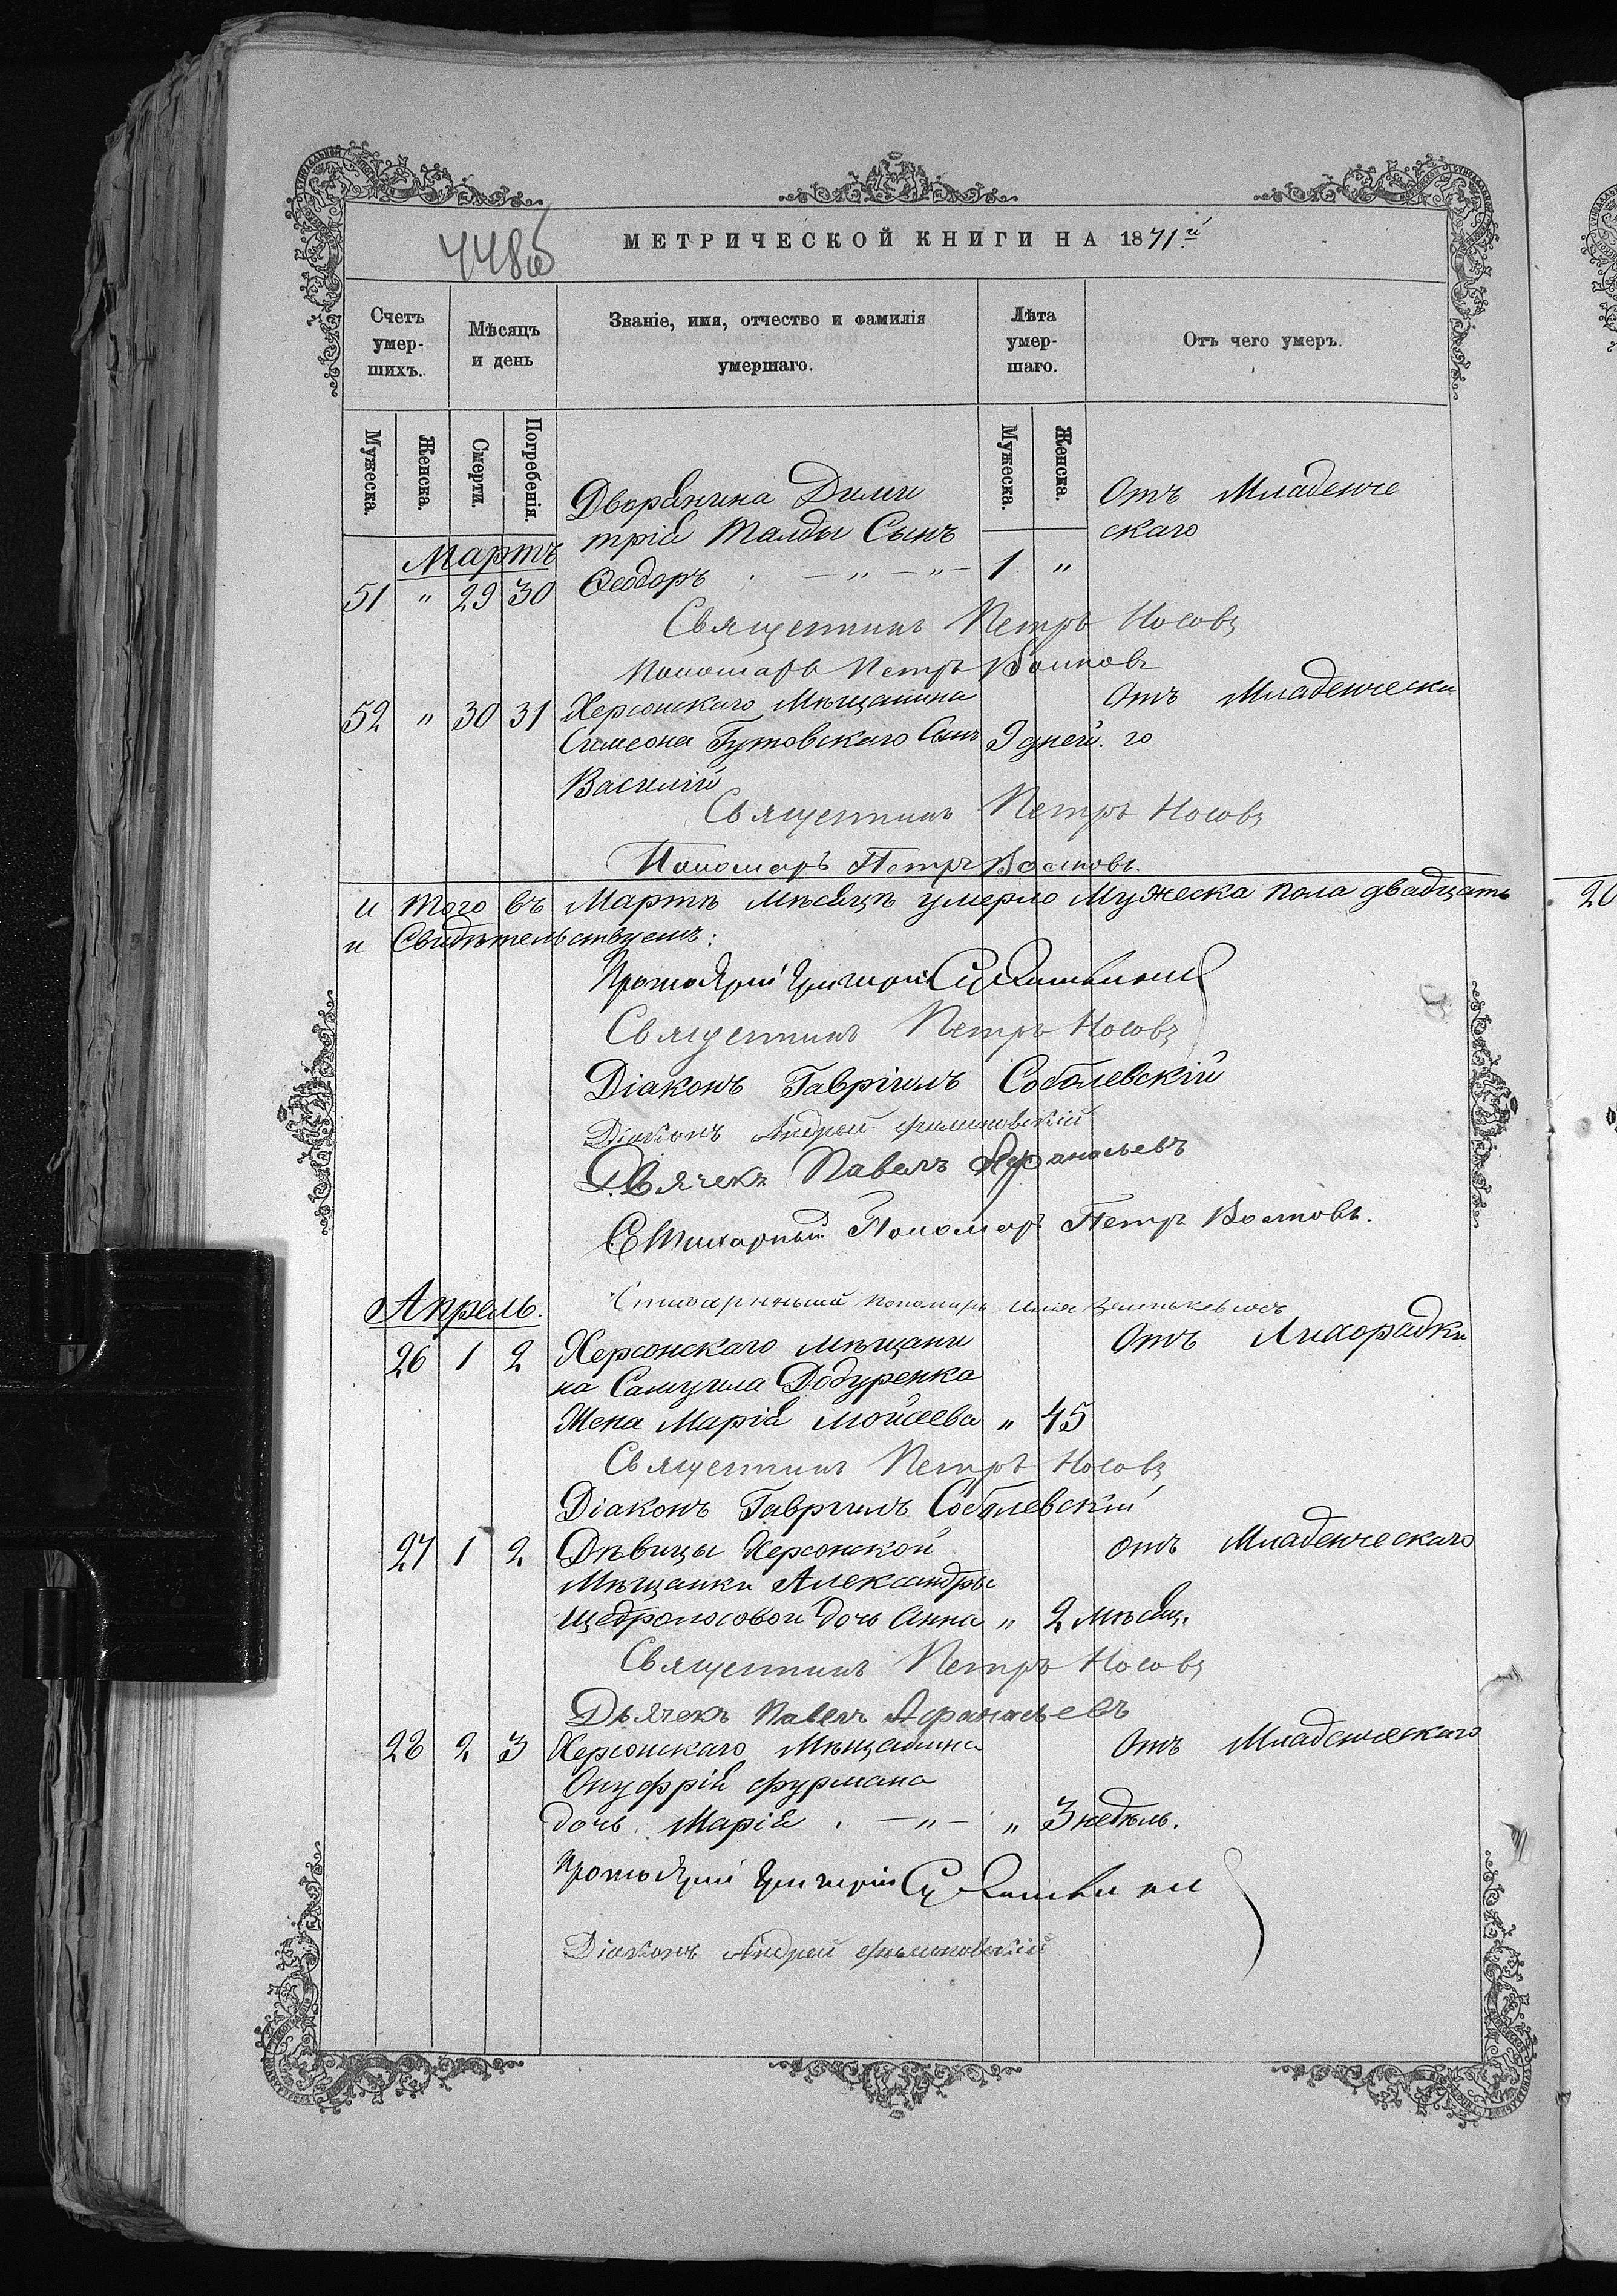 448об
МЕТРИЧЕСКОЙ КНИГИ НА 1871й
Счетъ умер-шихъ.
Мѣсяцъ и день
Званіе, имя, отчество и фамилія умершаго.
Лѣта умер-шаго.
Отъ чего умеръ.
Мужеска.
Женска.
Смерти.
Погребенія.
Мужеска.
Женска.
Дворянина Дими Отъ Младенче
трія Талды Сынъ скаго
Мартъ
51 " 29 30 Ѳеодоръ . — „ — „ — 1 "
Священникъ Петръ Носовъ
Пономарь Петръ Волковъ
52 " 30 31 Херсонскаго Мѣщанина Отъ Младенческа
Симеона Гутовскаго Сынъ 9 дней. го
Василій
Священникъ Петръ Носовъ
Пономарь Петръ Волковъ.
И того въ Мартѣ мѣсяцѣ умерло Мужеска пола двадцать
и Свидѣтельствуемъ:
Протоіерей Григорій
Священникъ Петръ Носовъ
Діаконъ Гавріилъ Соболевскій
Діаконъ Андрей
Дьячекъ Павелъ Афанасьевъ
Стихарный Пономарь Петръ Волковъ.
Апрель.
пономарь
26 1 2 Херсонскаго мѣщани Отъ Лихорадки
на Самуила Додуренка
Жена Марія Мойсеева " 45
Священникъ Петръ Носовъ
Діаконъ Гавріилъ Соболевскій
27 1 2 Дѣвицы Херсонской отъ Младенческаго
Мѣщанки Александры
Щедроносовой дочь Анна " 2 мѣсяц.
Священникъ Петръ Носовъ
Дьячекъ Павелъ Афанасьевъ
28 2 3 Херсонскаго Мѣщанина Отъ Младенческаго
Онуфрія Фурмана
дочь Марія . — „ — " 3 недѣль.
Протоіерей Григорій
Діаконъ Андрей
20